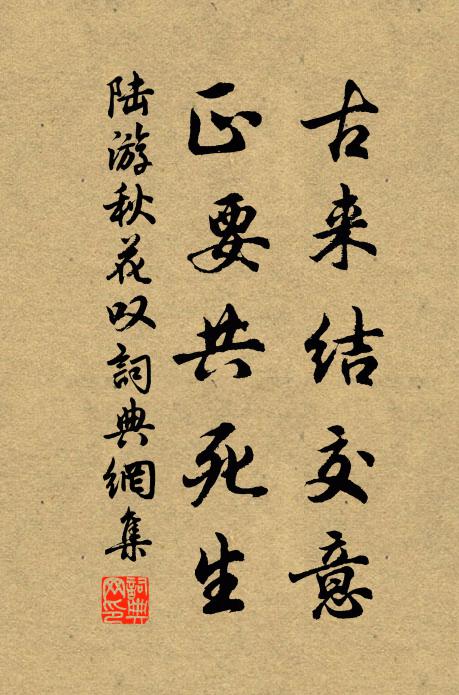 古来结交意
正要共死生
陆游秋花叹詞典網集
詞典网印